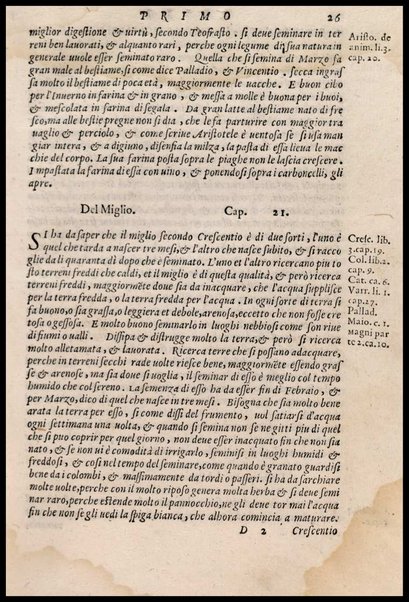 PRIMO 26
miglior digestione & uirtù, secondo Teofrasto. si deue seminare in ter
reni ben lauorati, & alquanto rari, perche ogni legume di sua natura in
generale uuole esser seminato raro. Quella che si semina di Marzo fa
gran male al bestiame, si come dice Palladio, & Vincentio. secca ingras
sa molto il bestiame di poca età, maggiormente le uacche. E buon cibo
per l'Inuerno in farina & in grano, & messa a molle è buona per i buoi,
& mescolata in farina di segala. Da gran latte al bestiame nato di fre
sco, ma alle bestie pregne non si dia, che le fa parturire con maggior tra
uaglio & perciolo, & come scriue Aristotele è uentosa se si usa man
giar intera, & a digiuno, disenfia la milza, la pasta di essa lieua le mac
chie del corpo. La sua farina posta sopra le piaghe non le lascia crescere.
Impastata la farina di essa con uino, & ponendosi sopra i carboncelli, gli
apre.
Aristo. de
anim. li. 3.
cap. 10.
Del Miglio. Cap. 21.
SI ha da saper che il miglio secondo Crescentio è di due sorti, l'uno è
quel che tarda a nascer tre mesi, & l'altro che nasce subito, & si racco
glie da li quaranta dì dopo che è seminato. L'uno et l'altro ricercano piu to
sto terreni freddi che caldi, et il miglio è di questa qualità, & però ricerca
terreni freddi, maggiormẽte doue sia da inacquare, che l'acqua supplisce
per la terra fredda, o la terra fredda per l'acqua. In ogni sorte di terra si
fa buono, o sia grassa, o leggiera et debole, arenosa, eccetto che non fosse cre
tosa o gessosa. E molto buono seminarlo in luoghi nebbiosi come son riue
di fiumi o ualli. Dissipa & distrugge molto la terra, & però si ricerca
molto alletamata, & lauorata. Ricerca terre che si possano adacquare,
perche in terreni secchi rade uolte riesce bene, maggiormẽte essendo gras
se & arenose, ma sia doue si uoglia, il seminar di esso è meglio col tempo
humido che col sereno. La semenza di esso ha da esser fin di Febraio, &
per Marzo, dico di quel che nasce in tre mesi. Bisogna che sia molto bene
arata la terra per esso, si come dissi del frumento, uol satiarsi d'acqua
ogni settimana una uolta, & quando si semina non se ne gitti piu di quel
che si puo coprir per quel giorno, non deue esser inacquato fin che non sia
nato, & se non ui è comodità di irrigarlo, seminisi in luoghi humidi &
freddosi, & cosi nel tempo del seminare, come quando è granato guardisi
bene da i colombi, & massimamente da tordi o passeri. si ha da sarchiare
molte uolte, perche con il molto riposo genera molta herba & si deue semi
nar raro, perche estende molto il pannocchio, ne gli deue tor mai l'acqua
fin che non se gli uedi la spiga bianca, che alhora comincia a maturare.
Cresc. lib.
3. cap. 19.
Col. lib. 2.
cap. 9.
Cat. ca. 6.
Varr. li. 1.
cap. 27.
Pallad.
Maio. c. 1.
Magni par
te 2. ca. 10.
D 2 Crescentio